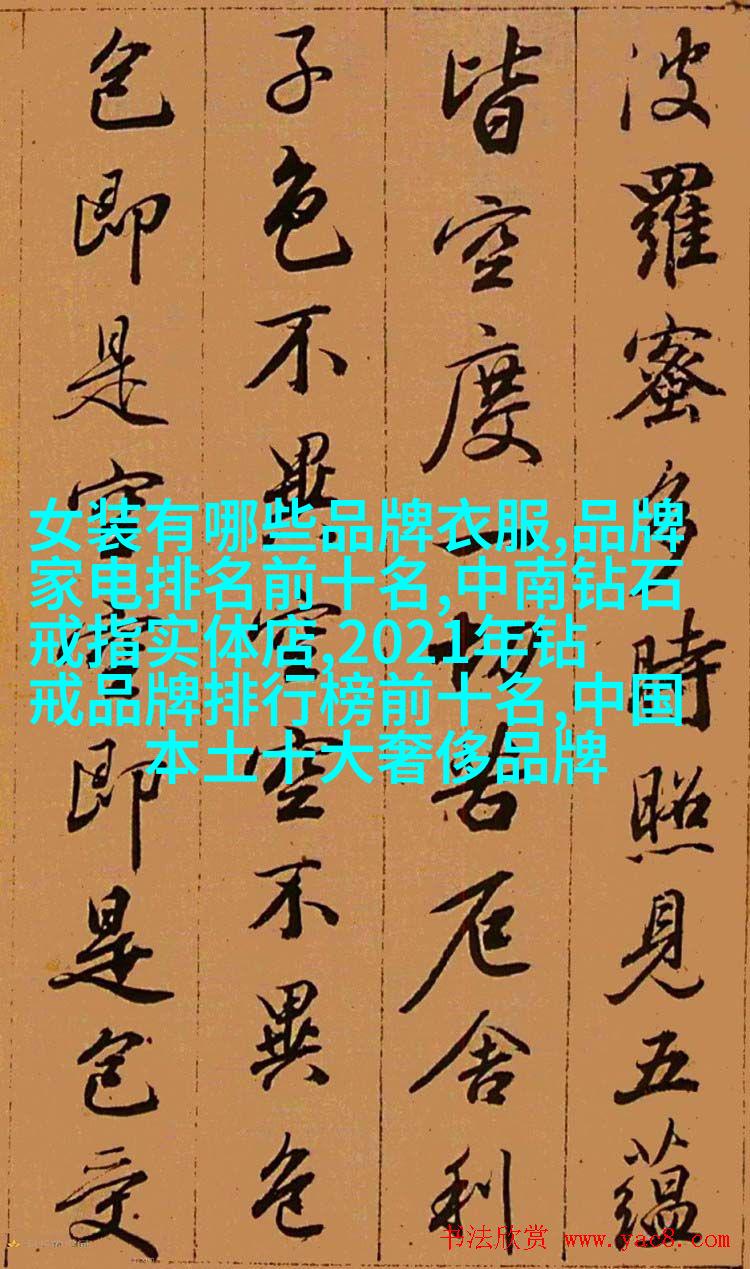 波羅蜜多時照見五蘊
皆空度一切苦厄舍利
子色不異空空不異色
色即是空空即是色受
女装有哪些品牌衣服,品牌
家电排名前十名,中南钻石
戒指实体店,2021年钻
戒品牌排行榜前十名,中国
本土十大奢侈品牌
书法欣赏 www.yac8.com